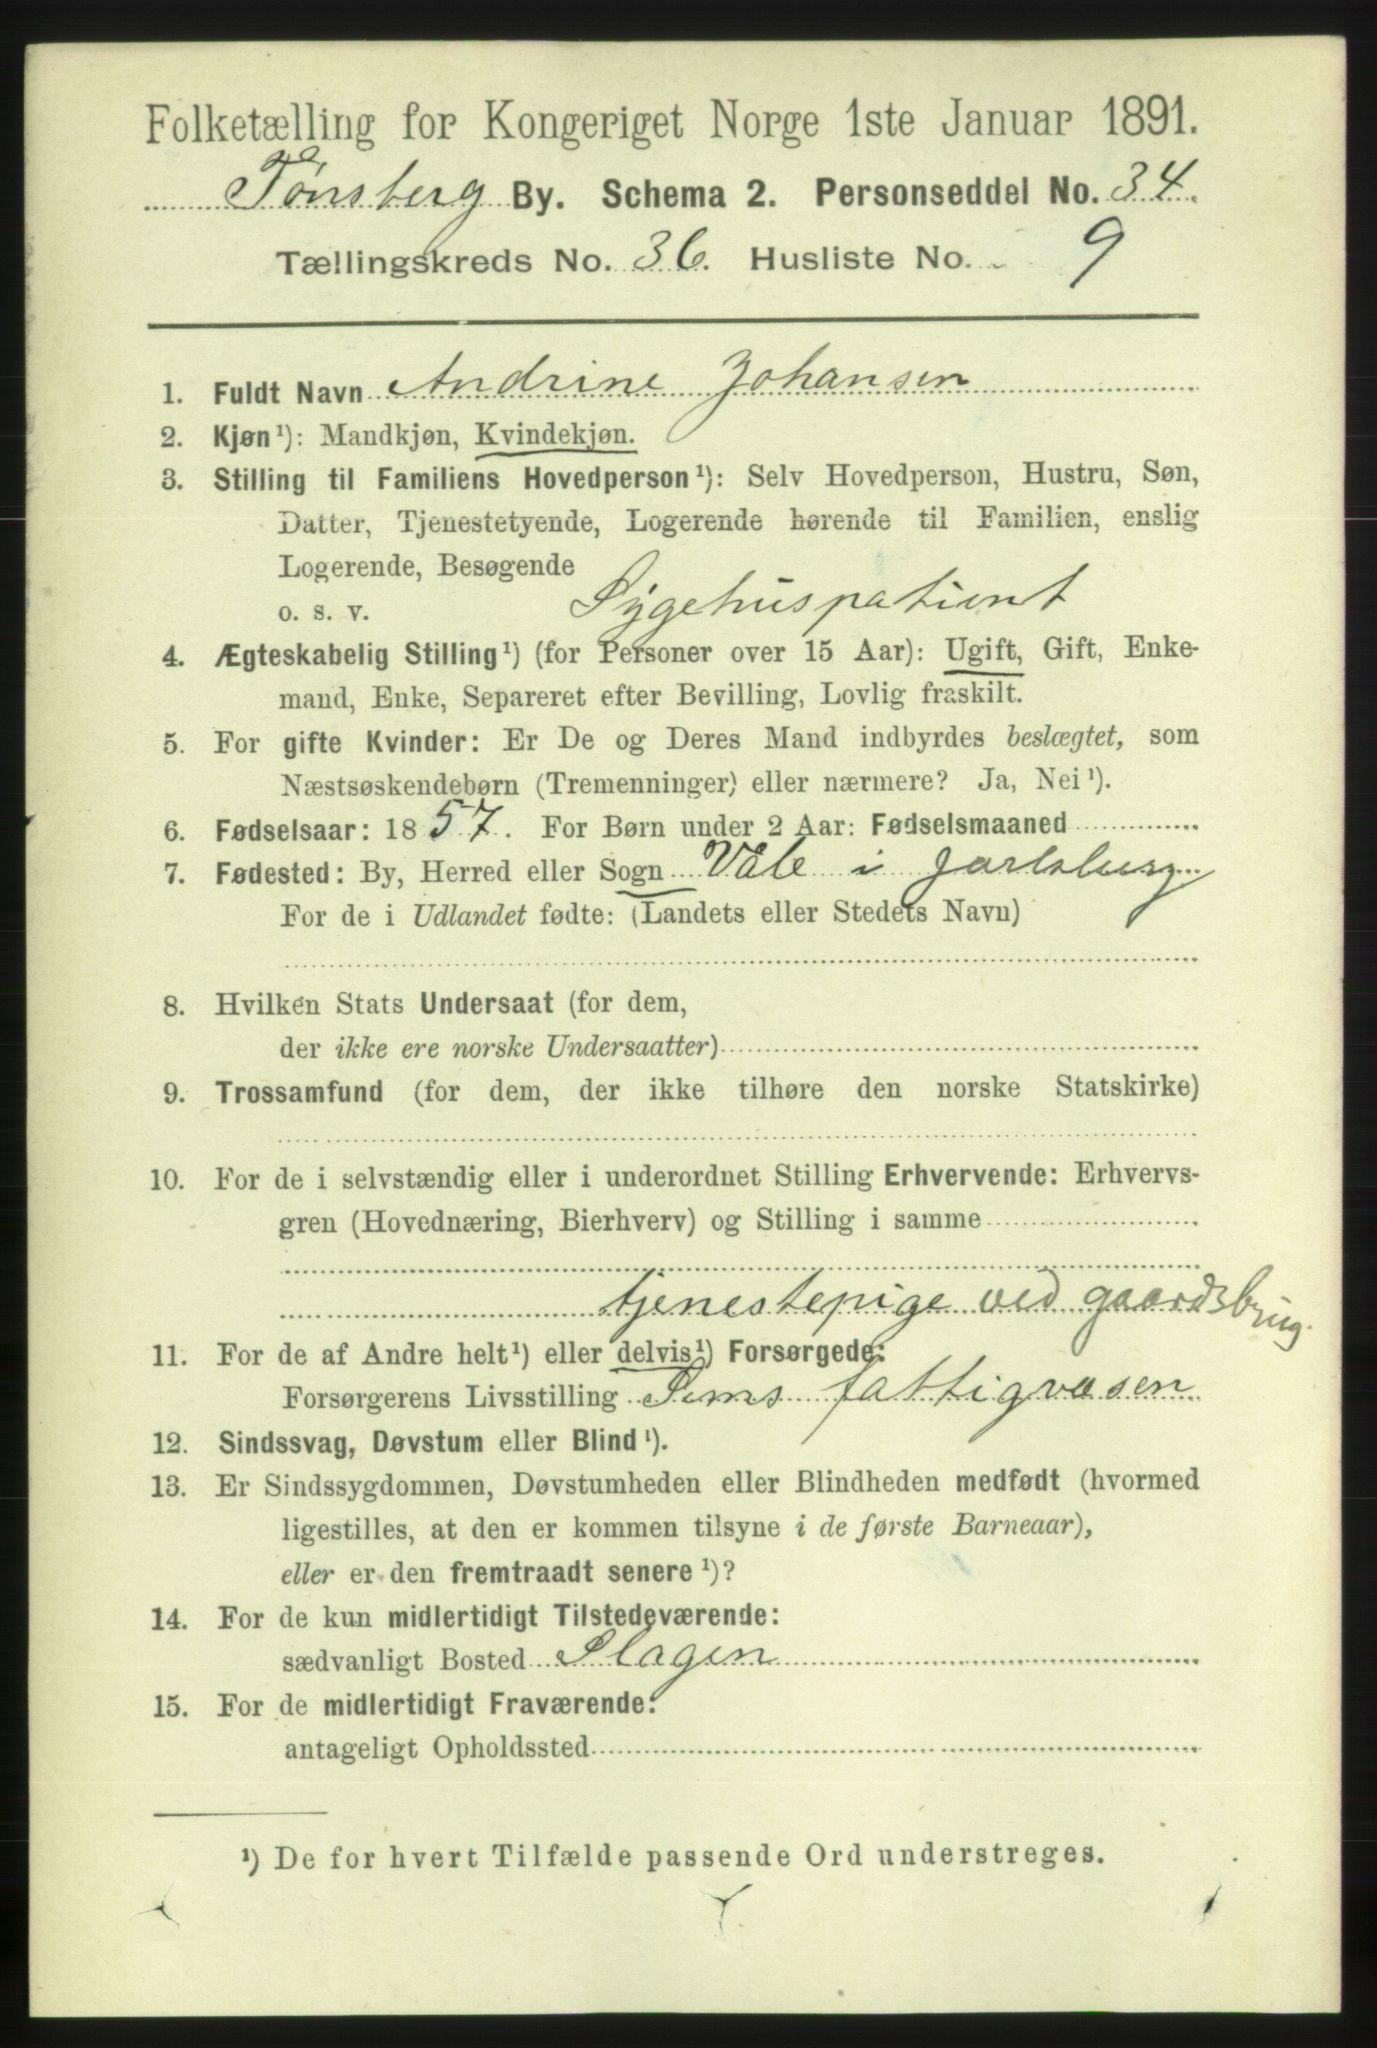 Folketælling for Kongeriget Norge 1ste Januar 1891.
Tønsberg By. Schema 2. Personseddel No. 34.
Tællingskreds No. 36. Husliste No. 9
1. Fuldt Navn Andrine Johansen
2. Kjøn¹): Mandkjøn, Kvindekjøn.
3. Stilling til Familiens Hovedperson¹): Selv Hovedperson, Hustru, Søn,
Datter, Tjenestetyende, Logerende hørende til Familien, enslig
Logerende, Besøgende
o. s. v. Sygehuspatient
4. Ægteskabelig Stilling¹) (for Personer over 15 Aar): Ugift, Gift, Enke-
mand, Enke, Separeret efter Bevilling, Lovlig fraskilt.
5. For gifte Kvinder: Er De og Deres Mand indbyrdes beslægtet, som
Næstsøskendebørn (Tremenninger) eller nærmere? Ja, Nei¹).
6. Fødselsaar: 1857. For Børn under 2 Aar: Fødselsmaaned
7. Fødested: By, Herred eller Sogn Våle i Jarlsberg
For de i Udlandet fødte: (Landets eller Stedets Navn)
8. Hvilken Stats Undersaat (for dem,
der ikke ere norske Undersaatter)
9. Trossamfund (for dem, der ikke tilhøre den norske Statskirke)
10. For de i selvstændig eller i underordnet Stilling Erhvervende: Erhvervs-
gren (Hovednæring, Bierhverv) og Stilling i samme
tjenestepige ved gaardsbrug.
11. For de af Andre helt¹) eller delvis¹) Forsørgede:
Forsørgerens Livsstilling Sems fattigvæsen
12. Sindssvag, Døvstum eller Blind¹).
13. Er Sindssygdommen, Døvstumheden eller Blindheden medfødt (hvormed
ligestilles, at den er kommen tilsyne i de første Barneaar),
eller er den fremtraadt senere¹)?
14. For de kun midlertidigt Tilstedeværende:
sædvanligt Bosted Slagen
15. For de midlertidigt Fraværende:
antageligt Opholdssted
¹) De for hvert Tilfælde passende Ord understreges.